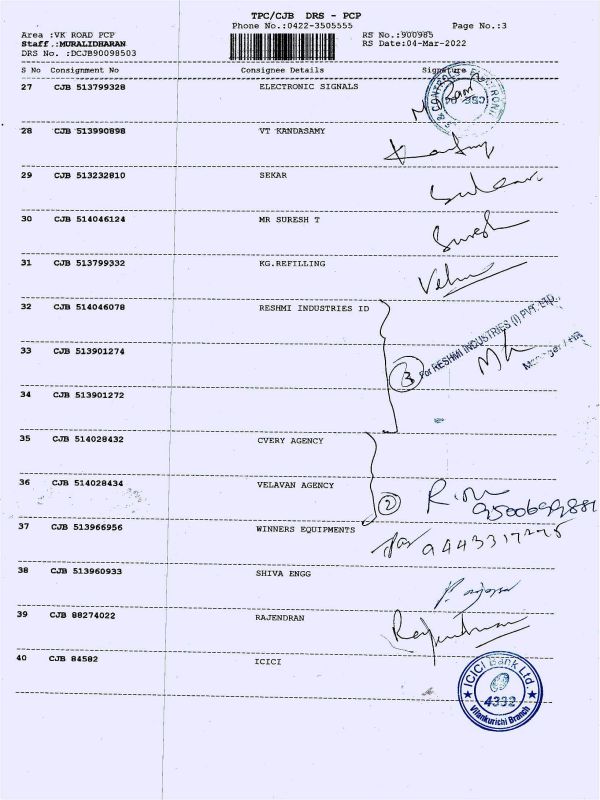 TPC/CJB DRS - PCP
Phone No.:0422-3505555 Page No.:3
Area :VK ROAD PCP RS No.:900985
Staff.:MURALIDHARAN RS Date:04-Mar-2022
DRS No. :DCJB90098503
S No Consignment No Consignee Details Signature
27 CJB 513799328 ELECTRONIC SIGNALS
28 CJB 513990898 VT KANDASAMY
29 CJB 513232810 SEKAR
30 CJB 514046124 MR SURESH T Suresh
31 CJB 513799332 KG.REFILLING Velu
32 CJB 514046078 RESHMI INDUSTRIES ID
For RESHMI INDUSTRIES (I) PVT. LTD.,
33 CJB 513901274
3
Manager / HR
34 CJB 513901272
35 CJB 514028432 CVERY AGENCY
36 CJB 514028434 VELAVAN AGENCY
2
37 CJB 513966956 WINNERS EQUIPMENTS
38 CJB 513960933 SHIVA ENGG
39 CJB 88274022 RAJENDRAN Rajendran
40 CJB 84582 ICICI
ICICI Bank Ltd.
4392
Vilankurichi Branch